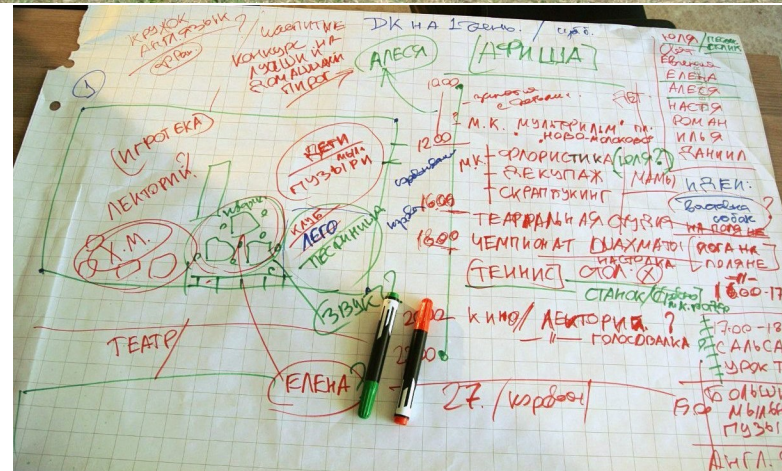 КРУЖОК
АНГЛ.ЯЗЫК ?
ЧАЕПИТИЕ
КОНКУРС НА
ЛУЧШИЙ
ДОМАШНИЙ
ПИРОГ
ДК НА 1 день. /
АЛЕСЯ
АФИША
1
ИГРОТЕКА
ЛЕКТОРИЙ ?
Х.М.
ДЕТИ
МЫЛ.
ПУЗЫРИ
КЛУБ
ЛЕГО
ЛЕСТНИЦА
ЗВУК ?
ТЕАТР /
ЕЛЕНА ?
1200
М.К. МУЛЬТФИЛЬМ"
НОВО-МОЛОКОВО"
М.К. ФЛОРИСТИКА (ЮЛЯ ?)
ДЕКУПАЖ
СКРАПБУКИНГ
МАМЫ
1600
ТЕАТРАЛЬНАЯ СТУДИЯ
1800
ЧЕМПИОНАТ ШАХМАТЫ
НАСТОЛКА
ТЕННИС СТОЛ. Х
СТАНОК /
КИНО / ЛЕКТОРИЙ ?
— " — ГОЛОСОВАЛКА
27. / коробейн
ЮЛЯ /
Евгения
ЕЛЕНА
АЛЕСЯ
НАСТЯ
РОМАН
ИЛЬЯ
ДАНИИЛ
ИДЕИ:
Выставка
собак ?
НА ПОЛЯНЕ
ЙОГА НА
ПОЛЯНЕ
— " —
1600-17
17:00-18
САЛЬСА
УРОК Т
БОЛЬШИ
МЫЛЬН
ПУЗЫ
АНГЛ.